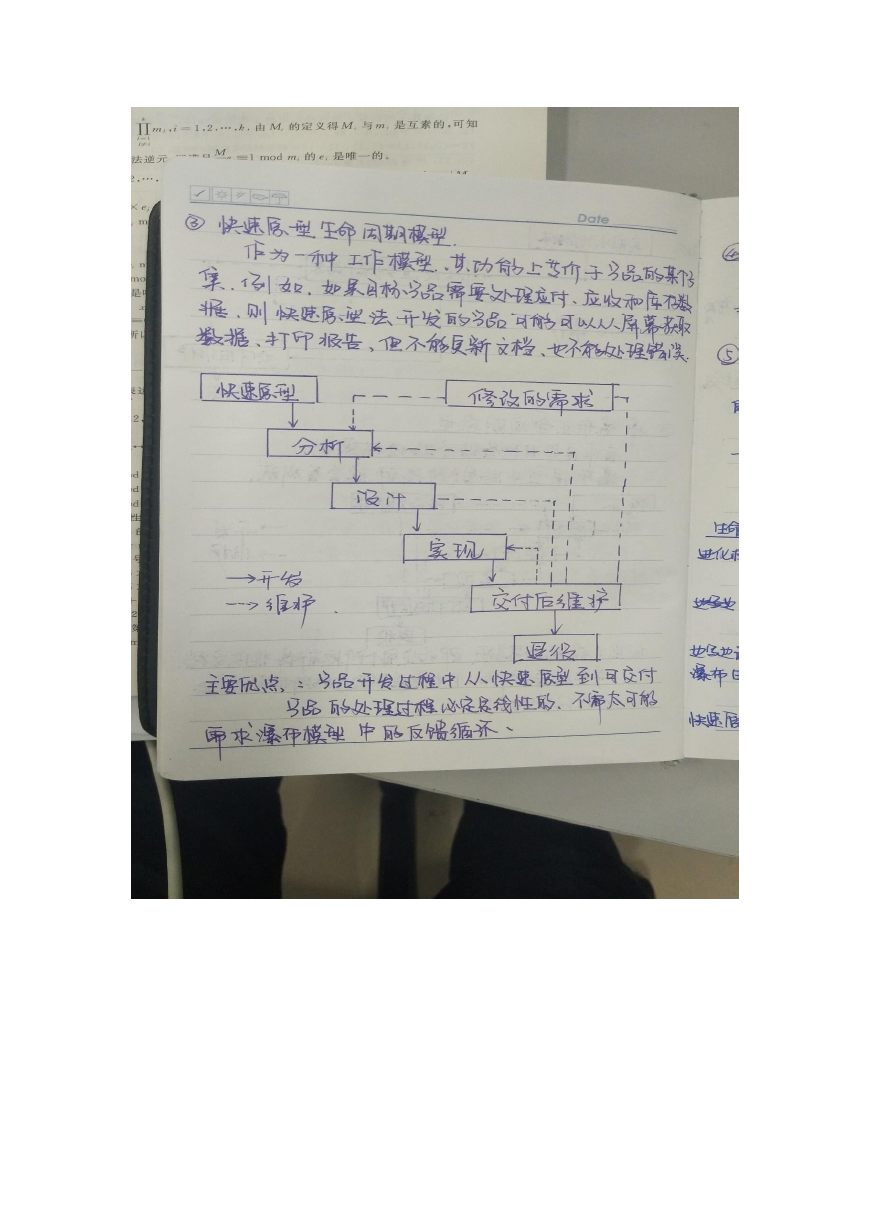 m_i, i=1,2,…,k. 由 M_i 的定义得 M_i 与 m_i 是互素的,可知
≡1 mod m_i 的 e_i 是唯一的。
Date
③ 快速原型生命周期模型.
作为一种工作模型、其功能上等价于产品的某个子
集、例如、如果目标产品需要处理应付、应收和库存数
据、则快速原型法开发的产品可能可以从屏幕获取
数据、打印报告、但不能更新文档、也不能处理错误.
快速原型
修改的需求
分析
设计
实现
→开发
交付后维护
--→维护
退役
主要优点:产品开发过程中从快速原型到可交付
产品的处理过程必定是线性的、不需太可能
需求瀑布模型中的反馈循环、
④
⑤
生命
进化
瀑布
快速原